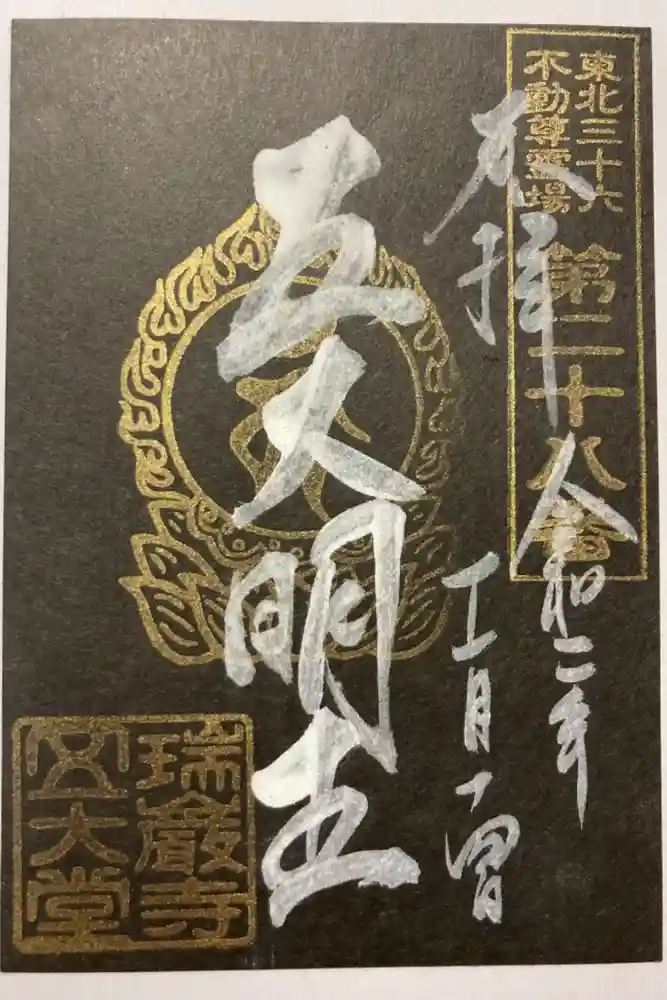 東北三十六
不動尊霊場
第二十八番
奉拝
令和二年
十一月十四日
五大明王
瑞巌寺
五大堂